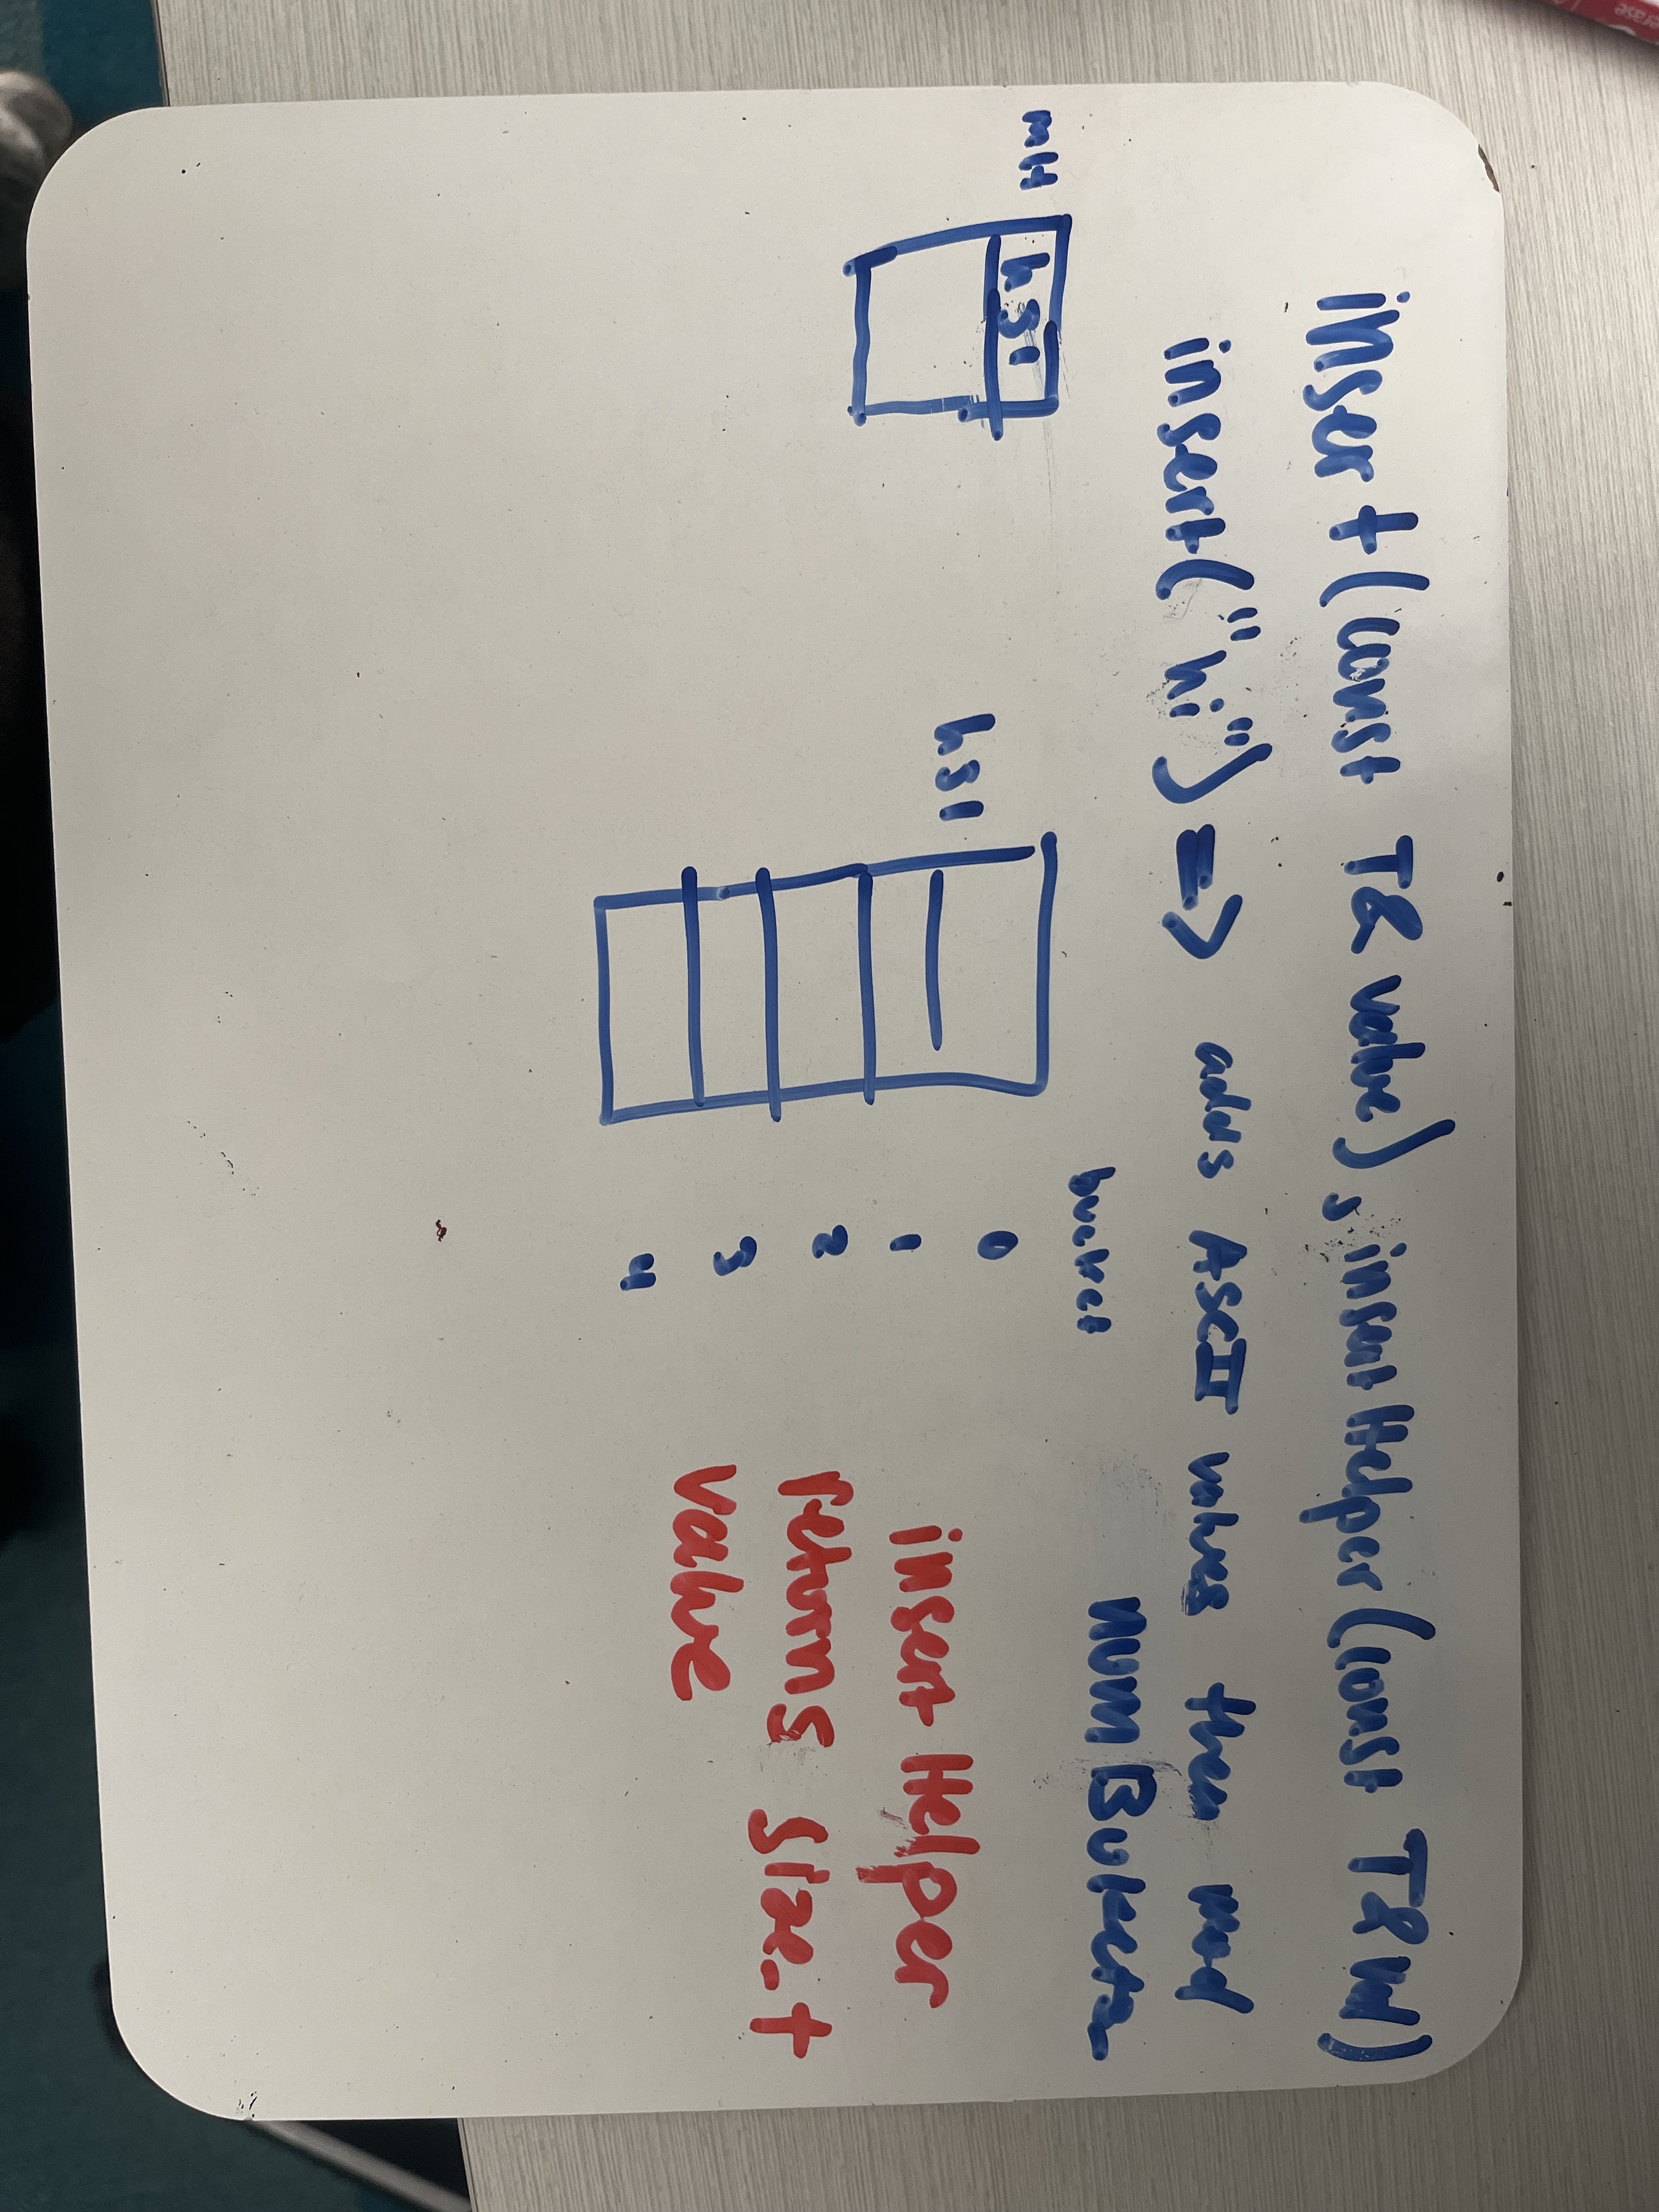 insert(const T& value) sinsertHelper(const T& val)
insert("hi") => adds ASCII values then mod
numBuketz
bucket
mH
hS1
hS1
0
1
2
3
4
insertHelper
returns size_t
value